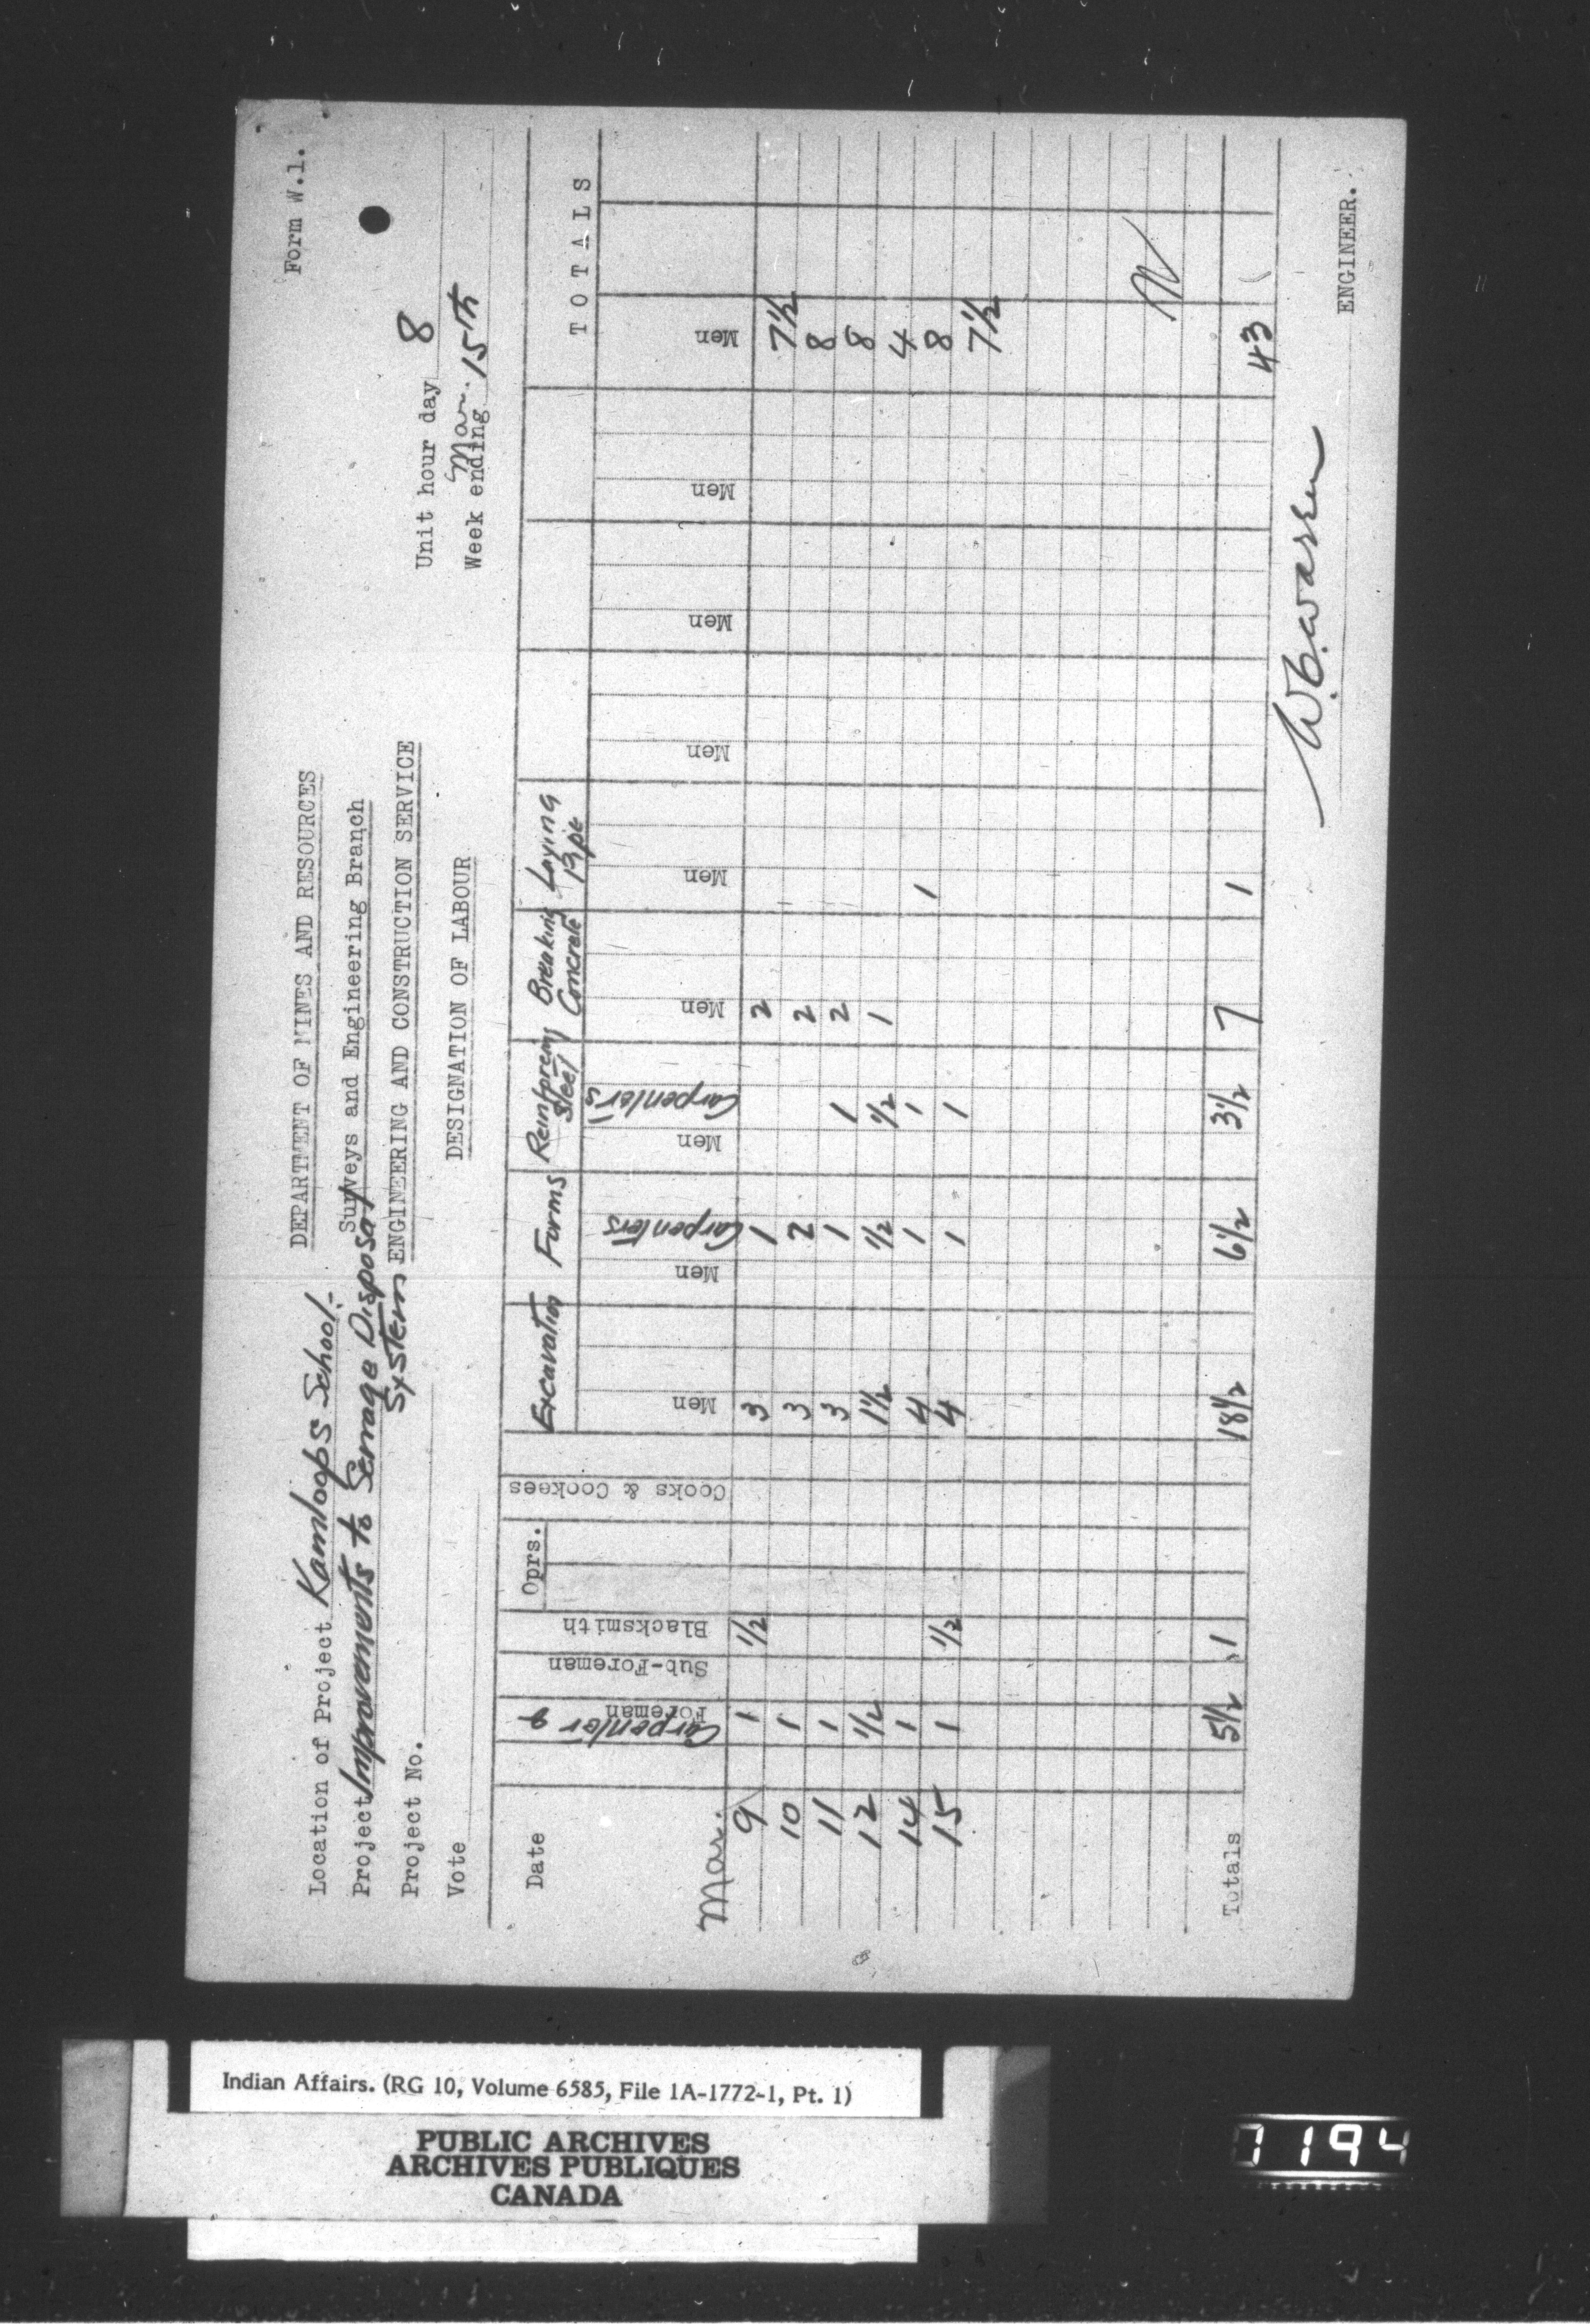 Form W.1.
DEPARTMENT OF MINES AND RESOURCES
Location of Project Kamloops School:-
Surveys and Engineering Branch
Project Improvements to Sewage Disposal
System
ENGINEERING AND CONSTRUCTION SERVICE
Project No.
Unit hour day 8
Vote
DESIGNATION OF LABOUR
Week ending Mar. 15th
Date Carpenter & Foreman Sub-Foreman Blacksmith Oprs. Cooks & Cookees Excavation Forms Steel Breaking Concrete Laying Pipe TOTALS
Men Men Carpenters Men Carpenters Men Men Men Men Men Men
Mar.
9 1 1/2 3 1 2 7 1/2
10 1 3 2 2 8
11 1 3 1 1 2 8
12 1/2 1 1/2 1/2 1/2 1 4
14 1 4 1 1 1 8
15 1 1/2 4 1 1 7 1/2
Totals 5 1/2 1 18 1/2 6 1/2 3 1/2 7 1 43
ENGINEER.
Indian Affairs. (RG 10, Volume 6585, File 1A-1772-1, Pt. 1)
PUBLIC ARCHIVES
ARCHIVES PUBLIQUES
CANADA
7194